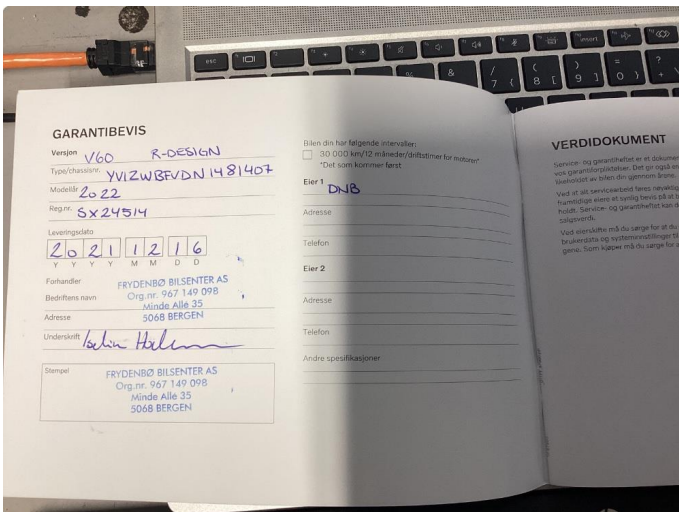 GARANTIBEVIS
Versjon V60 R-DESIGN
Type/chassisnr. YV1ZWBFVDN1481407
Modellår 2022
Reg.nr. SX24514
Leveringsdato
2 0 2 1 1 2 1 6
Y Y Y Y M M D D
Forhandler
Bedriftens navn
FRYDENBØ BILSENTER AS
Org.nr. 967 149 098
Minde Allé 35
5068 BERGEN
Adresse
Underskrift
Stempel
FRYDENBØ BILSENTER AS
Org.nr. 967 149 098
Minde Allé 35
5068 BERGEN
Bilen din har følgende intervaller:
30 000 km/12 måneder/driftstimer for motoren*
*Det som kommer først
Eier 1 DNB
Adresse
Telefon
Eier 2
Adresse
Telefon
Andre spesifikasjoner
VERDIDOKUMENT
Service- og garantiheftet er et dokumen
vos garantiforpliktelser. Det gir også en
av bilen din gjennom årene.
Ved at alt servicearbeid føres nøyaktig
framtidige eiere et synlig bevis på at b
holdt. Service- og garantiheftet kan d
salgsverdi.
Ved eierskifte må du sørge for at du
brukerdata og systeminnstillinger til
gene. Som kjøper må du sørge for
esc
insert
&
/
7 {
(
8 [
)
9 ]
=
0 }
?
+